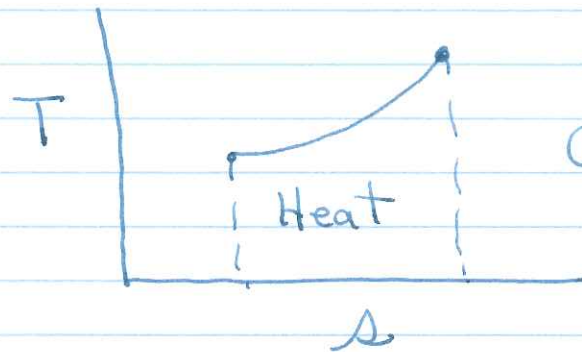 T
Heat
s